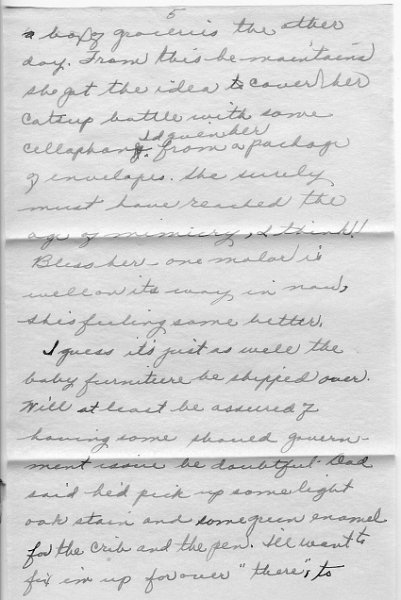 5
a box of groceries the other
day. From this he maintains
she got the idea to cover her
Catsup bottle with some
I'd given her
cellaphane from a package
of envelopes. She surely
must have reached the
age of mimicry, I think!!
Bless her - one molar is
well on its way in now,
she's feeling some better.
I guess it's just as well the
baby furniture be shipped over.
Will at least be assured of
having some should govern-
ment issue be doubtful. Dad
said he'd pick up some light
oak stain and some green enamel
for the crib and the pen. I'll want to
fix 'em up for over "there", to